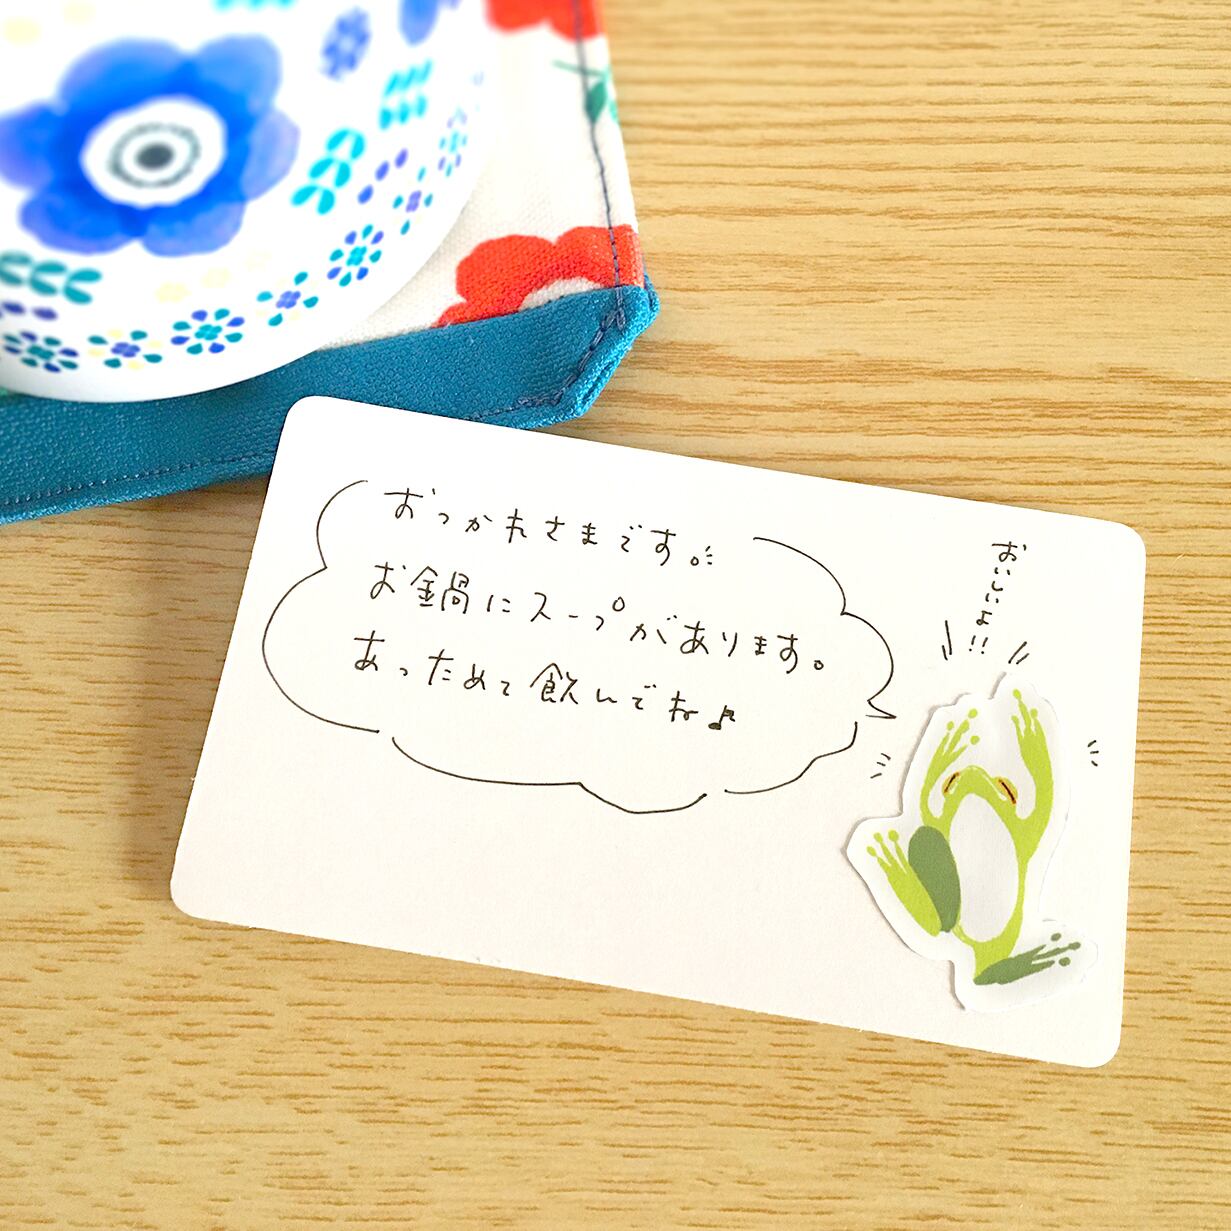 おつかれさまです。
お鍋にスープがあります。
あっためて飲んでね♪
おいしいよ!!